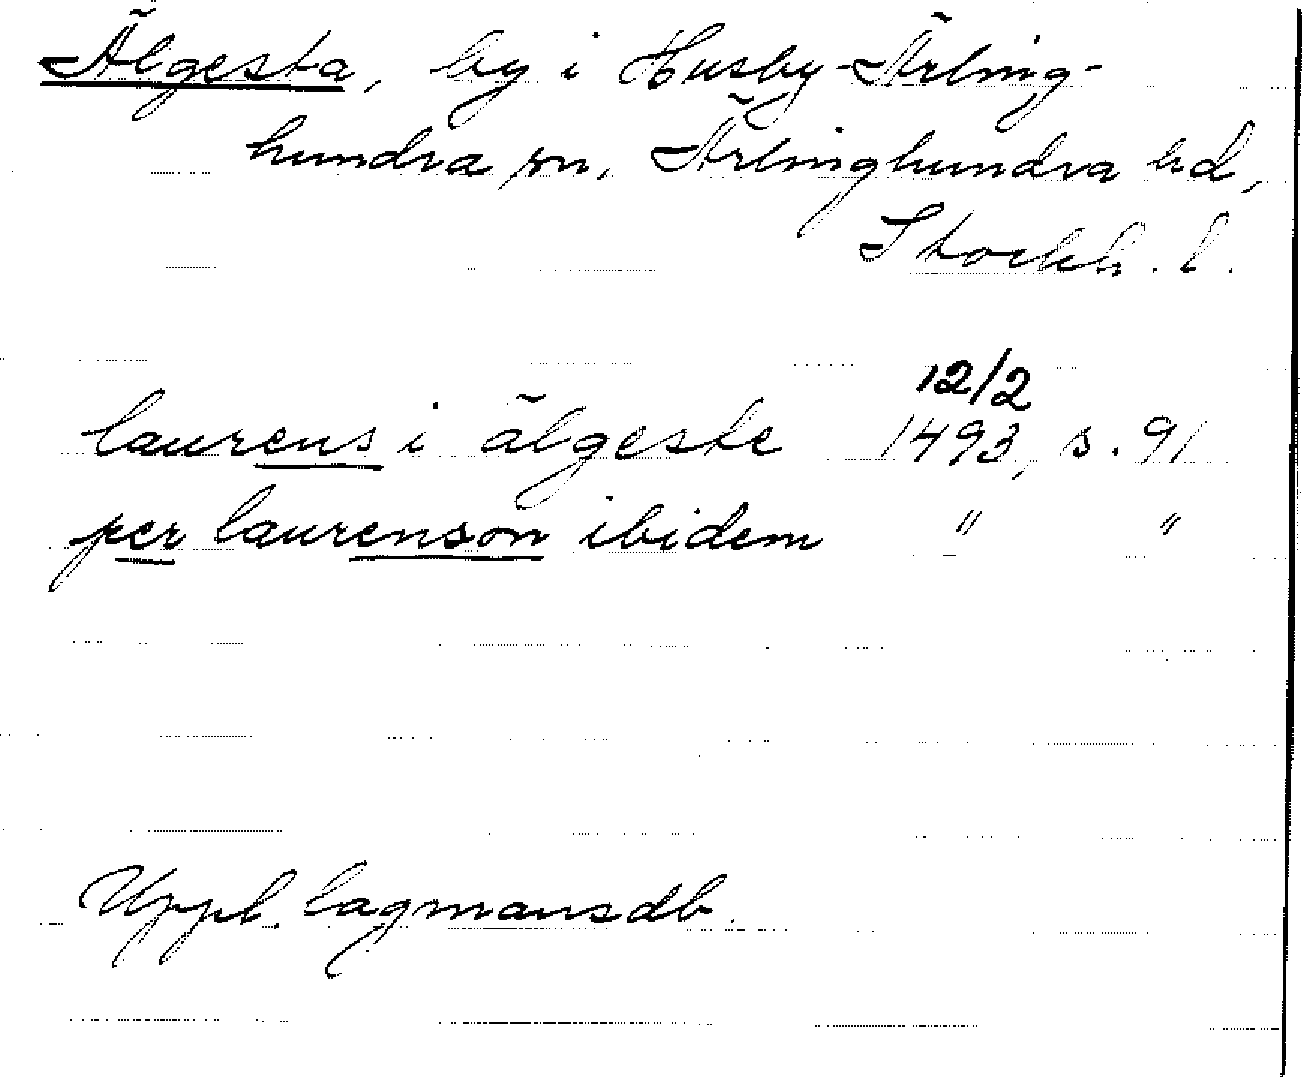 Älgesta, by i Husby-Ärling-
hundra sn, Ärlinghundra hd,
Stockh. l.
12/2
laurens i älgeste 1493, s. 91
per laurenson ibidem " "
Uppl. lagmansdb.